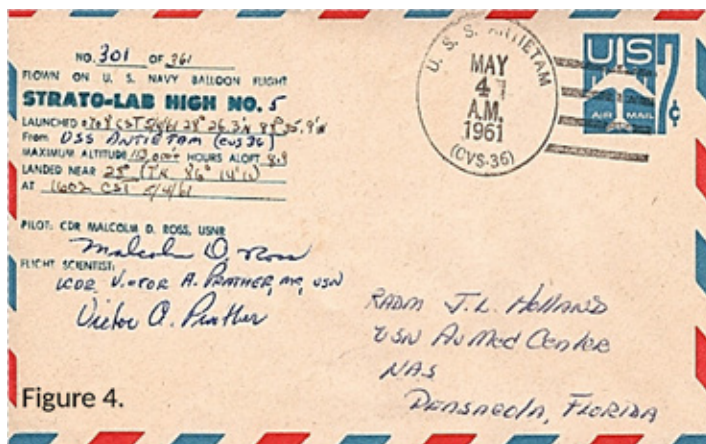 NO. 301 OF 361
FLOWN ON U. S. NAVY BALLOON FLIGHT
STRATO-LAB HIGH NO. 5
LAUNCHED 0708 CST 5/4/61 28° 26.3'N 88° 35.9'W
From USS ANTIETAM (CVS 36)
MAXIMUM ALTITUDE HOURS ALOFT
LANDED NEAR 28° 86°
AT 1602 CST 5/4/61
PILOT: CDR MALCOLM D. ROSS, USNR
Malcolm D. Ross
FLIGHT SCIENTIST:
LCDR VICTOR A. PRATHER, MC, USN
Victor A. Prather
U. S. S. ANTIETAM
MAY
4
A.M.
1961
(CVS-36)
US
AIR MAIL
7¢
RADM J. L. HOLLAND
USN AvMed Center
NAS
PENSACOLA, FLORIDA
Figure 4.